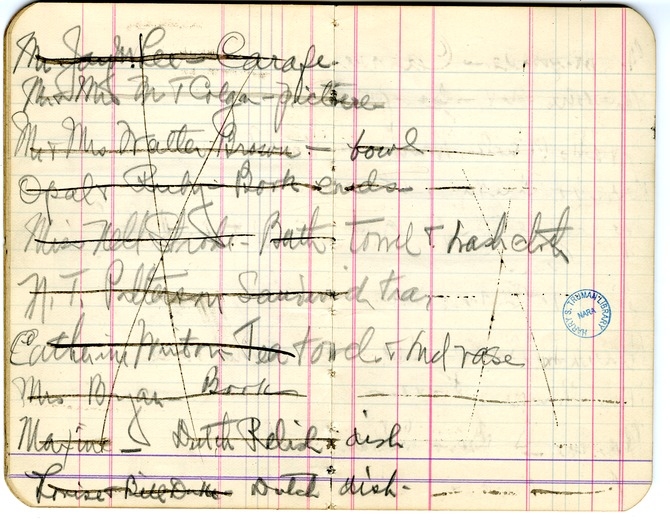 Mr Jay M. Lee - Carafe.
Mr & Mrs M T Colgan - picture
Mr & Mrs Walter Brown - bowl
Opal & Ruby Book ends
Miss Nell - Bath Towel & wash cloth
N. T. Patterson Sandwich tray
Catherine - Tea towel & Ind vase
Mrs. Bryan Book
Maxine - Dutch Relish dish
Louise & Bill Duke Dutch dish -
HARRY S. TRUMAN LIBRARY
NARA